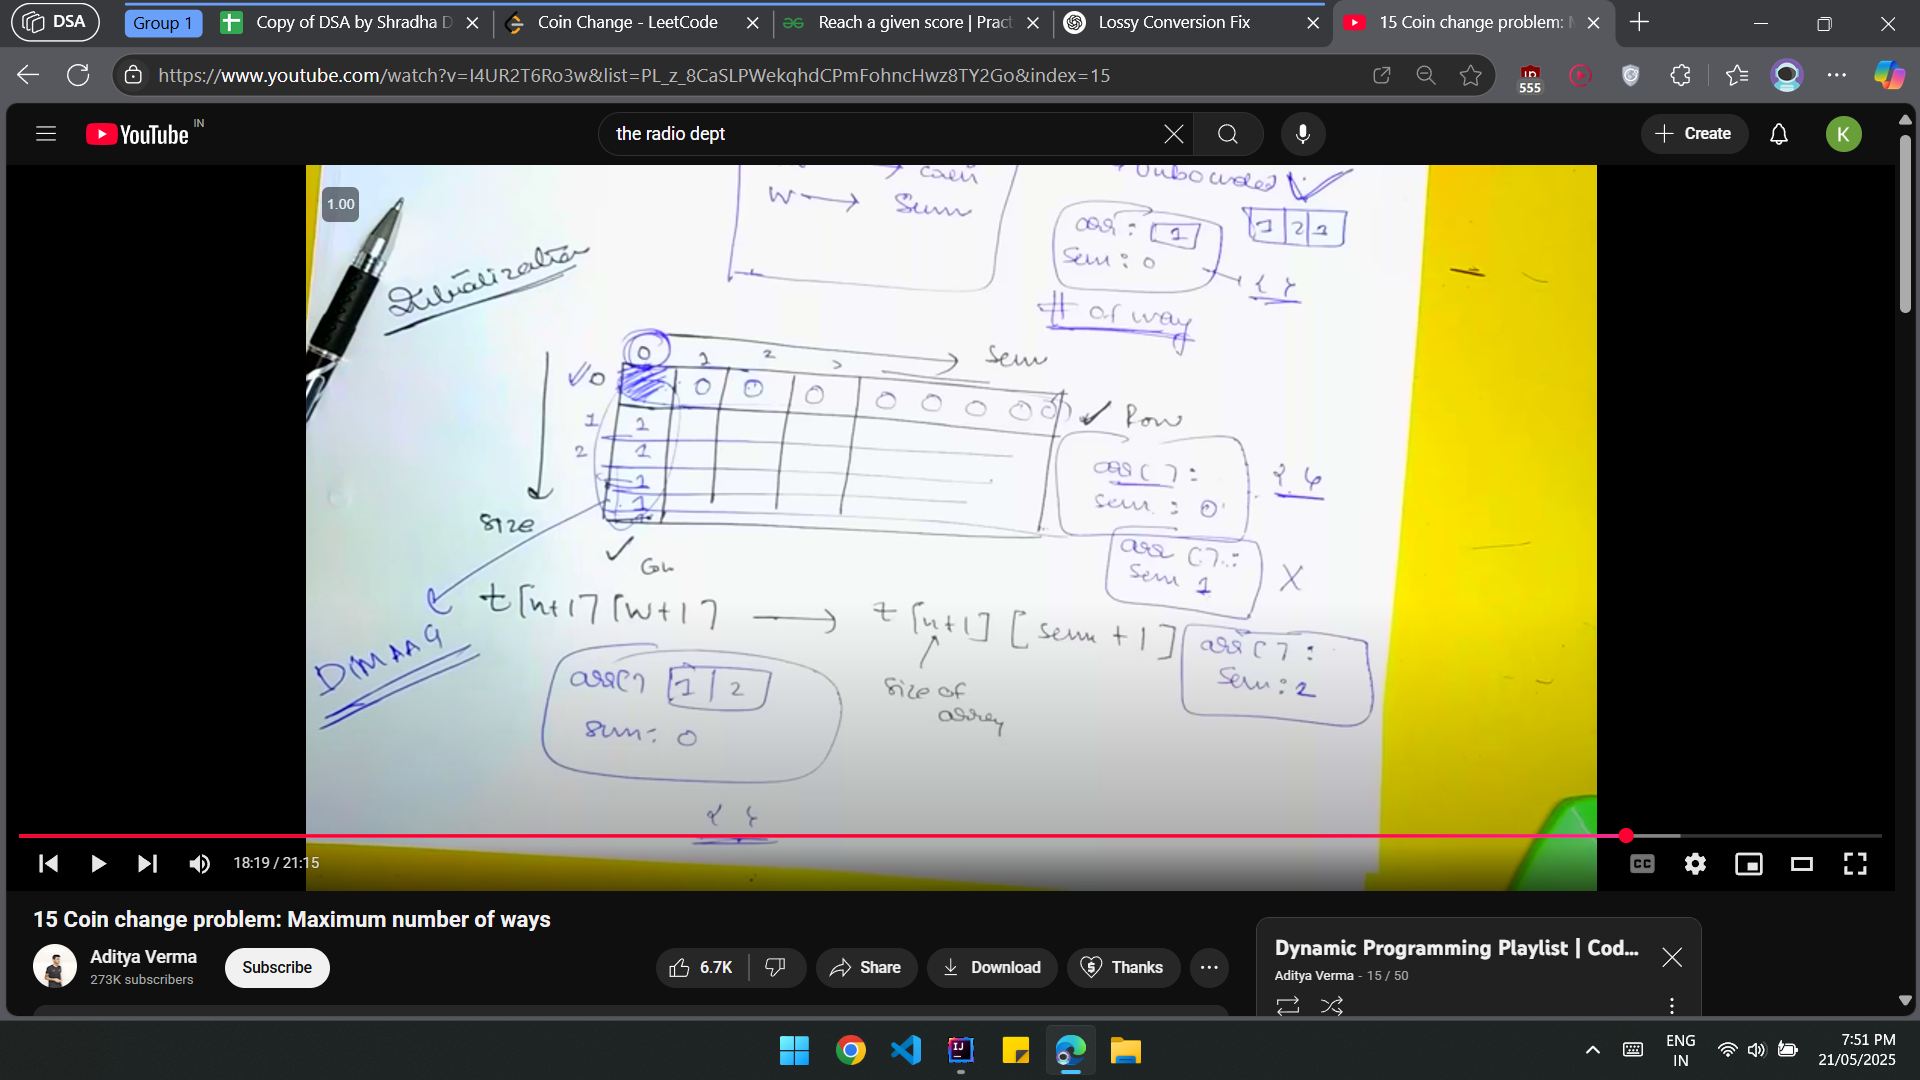 DSA
Group 1
Copy of DSA by Shradha D
Coin Change - LeetCode
Reach a given score | Pract
Lossy Conversion Fix
15 Coin change problem: M
https://www.youtube.com/watch?v=I4UR2T6Ro3w&list=PL_z_8CaSLPWekqhdCPmFohncHwz8TY2Go&index=15
555
YouTube IN
the radio dept
Create
K
1.00
→ Coin
W → Sum
Unbounded
arr : 1
Sum : 0
1 2 3
{ }
# of way
Initialization
0 1 2 3 → Sum
0 0 0 0 0 0 0 0 0
Row
1 1
2 1
1
1
size
arr [ ] :
sum : 0
{ }
arr [ ] :
Sum 1
X
t[n+1][W+1] → t[n+1][sum+1]
size of
array
arr [ ] :
Sum : 2
DIMAAG
arr[] 1 2
sum: 0
{ }
18:19 / 21:15
CC
15 Coin change problem: Maximum number of ways
Aditya Verma
273K subscribers
Subscribe
6.7K
Share
Download
Thanks
Dynamic Programming Playlist | Cod...
Aditya Verma - 15 / 50
ENG
IN
7:51 PM
21/05/2025